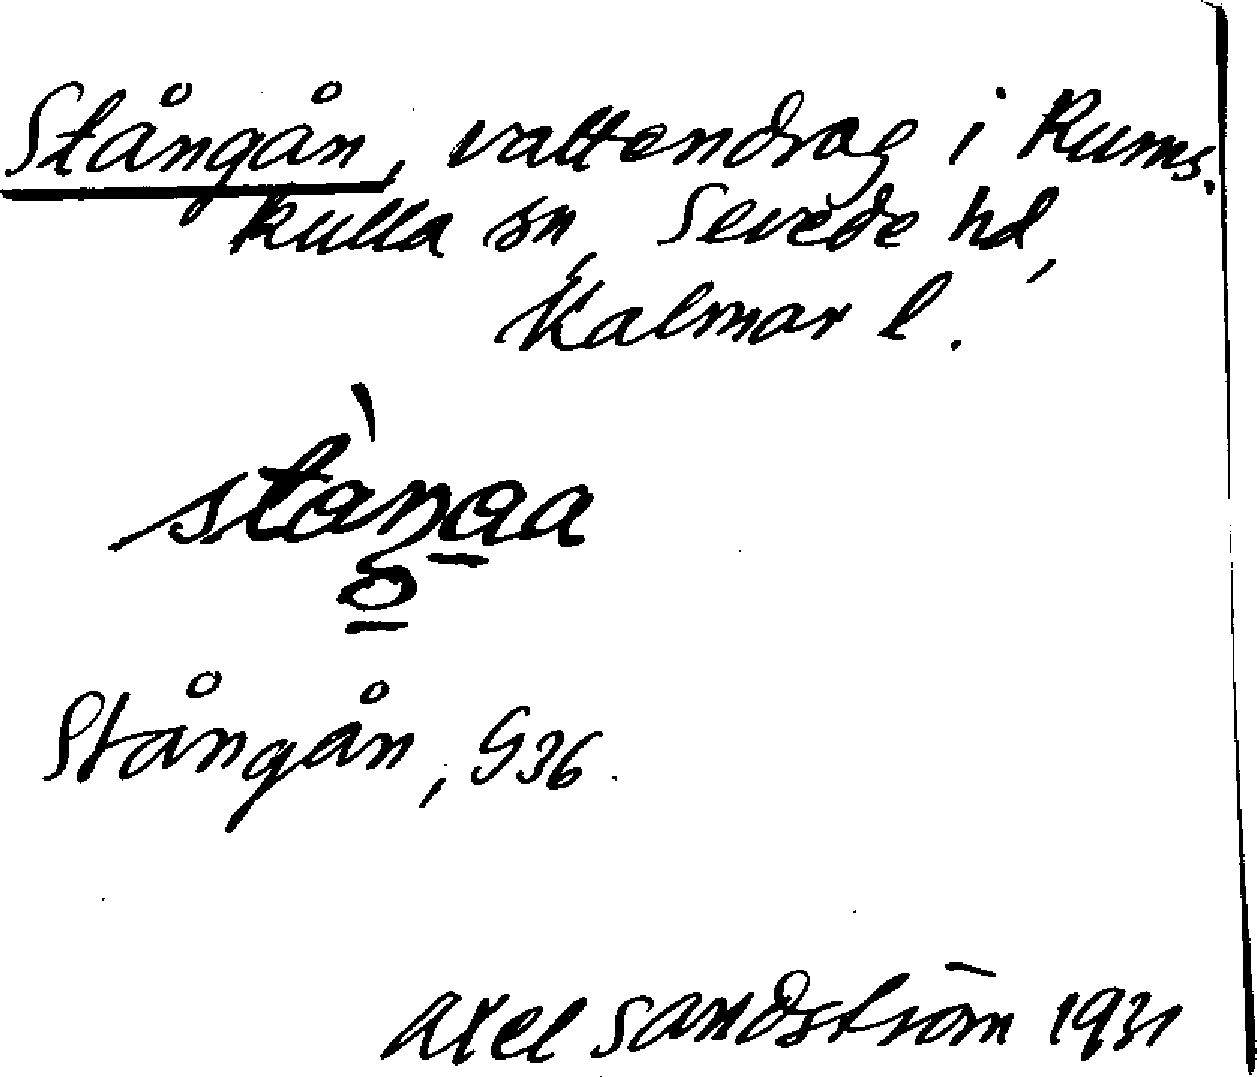 Stångån, vattendrag i Rums-
kulla sn, Sevede hd,
Kalmar l.
Stångån, G36.
Axel Sandström 1931